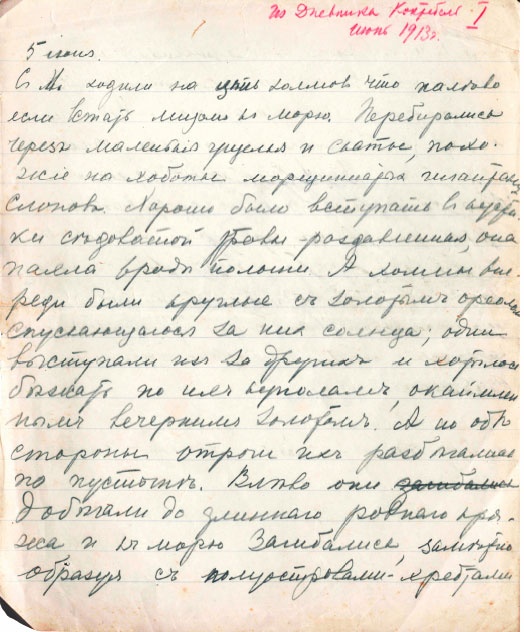 Из Дневника Коктебель I
июнь 1913 г.
5 июня.
С М. ходили на цепь холмов что налево
если встать лицом къ морю. Перебирались
через маленькия ущелья и скаты, похо-
жіе на хоботы морщинистых гигантских
слоновъ. Хорошо было вступать в
ки седоватой травы - раздавленная, она
пахла вроде полыни. А холмы впе-
реди были круглые съ золотымъ ореолом
спускающагося за них солнца; одни
выступали изъ за другихъ и хотелось
бежать по ихъ куполамъ, окаймлен
нымъ вечернимъ золотомъ. А по обе
стороны отроги ихъ разбегались
по пустыне. Влево они загибались
добегали до длиннаго ровнаго кря-
жа и къ морю загибались,
образуя съ полуостровами-хребтами